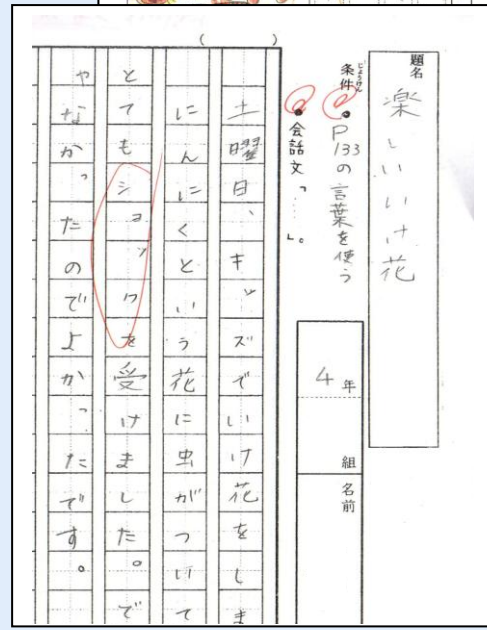 題名 楽しいいけ花
条件 ●P133の言葉を使う
じょうけん
●会話文「……」。
4年 組 名前
土曜日、キッズでいけ花をしま
にんにくという花に虫がついて
とてもショックを受けました。で
ゃなかったのでよかったです。